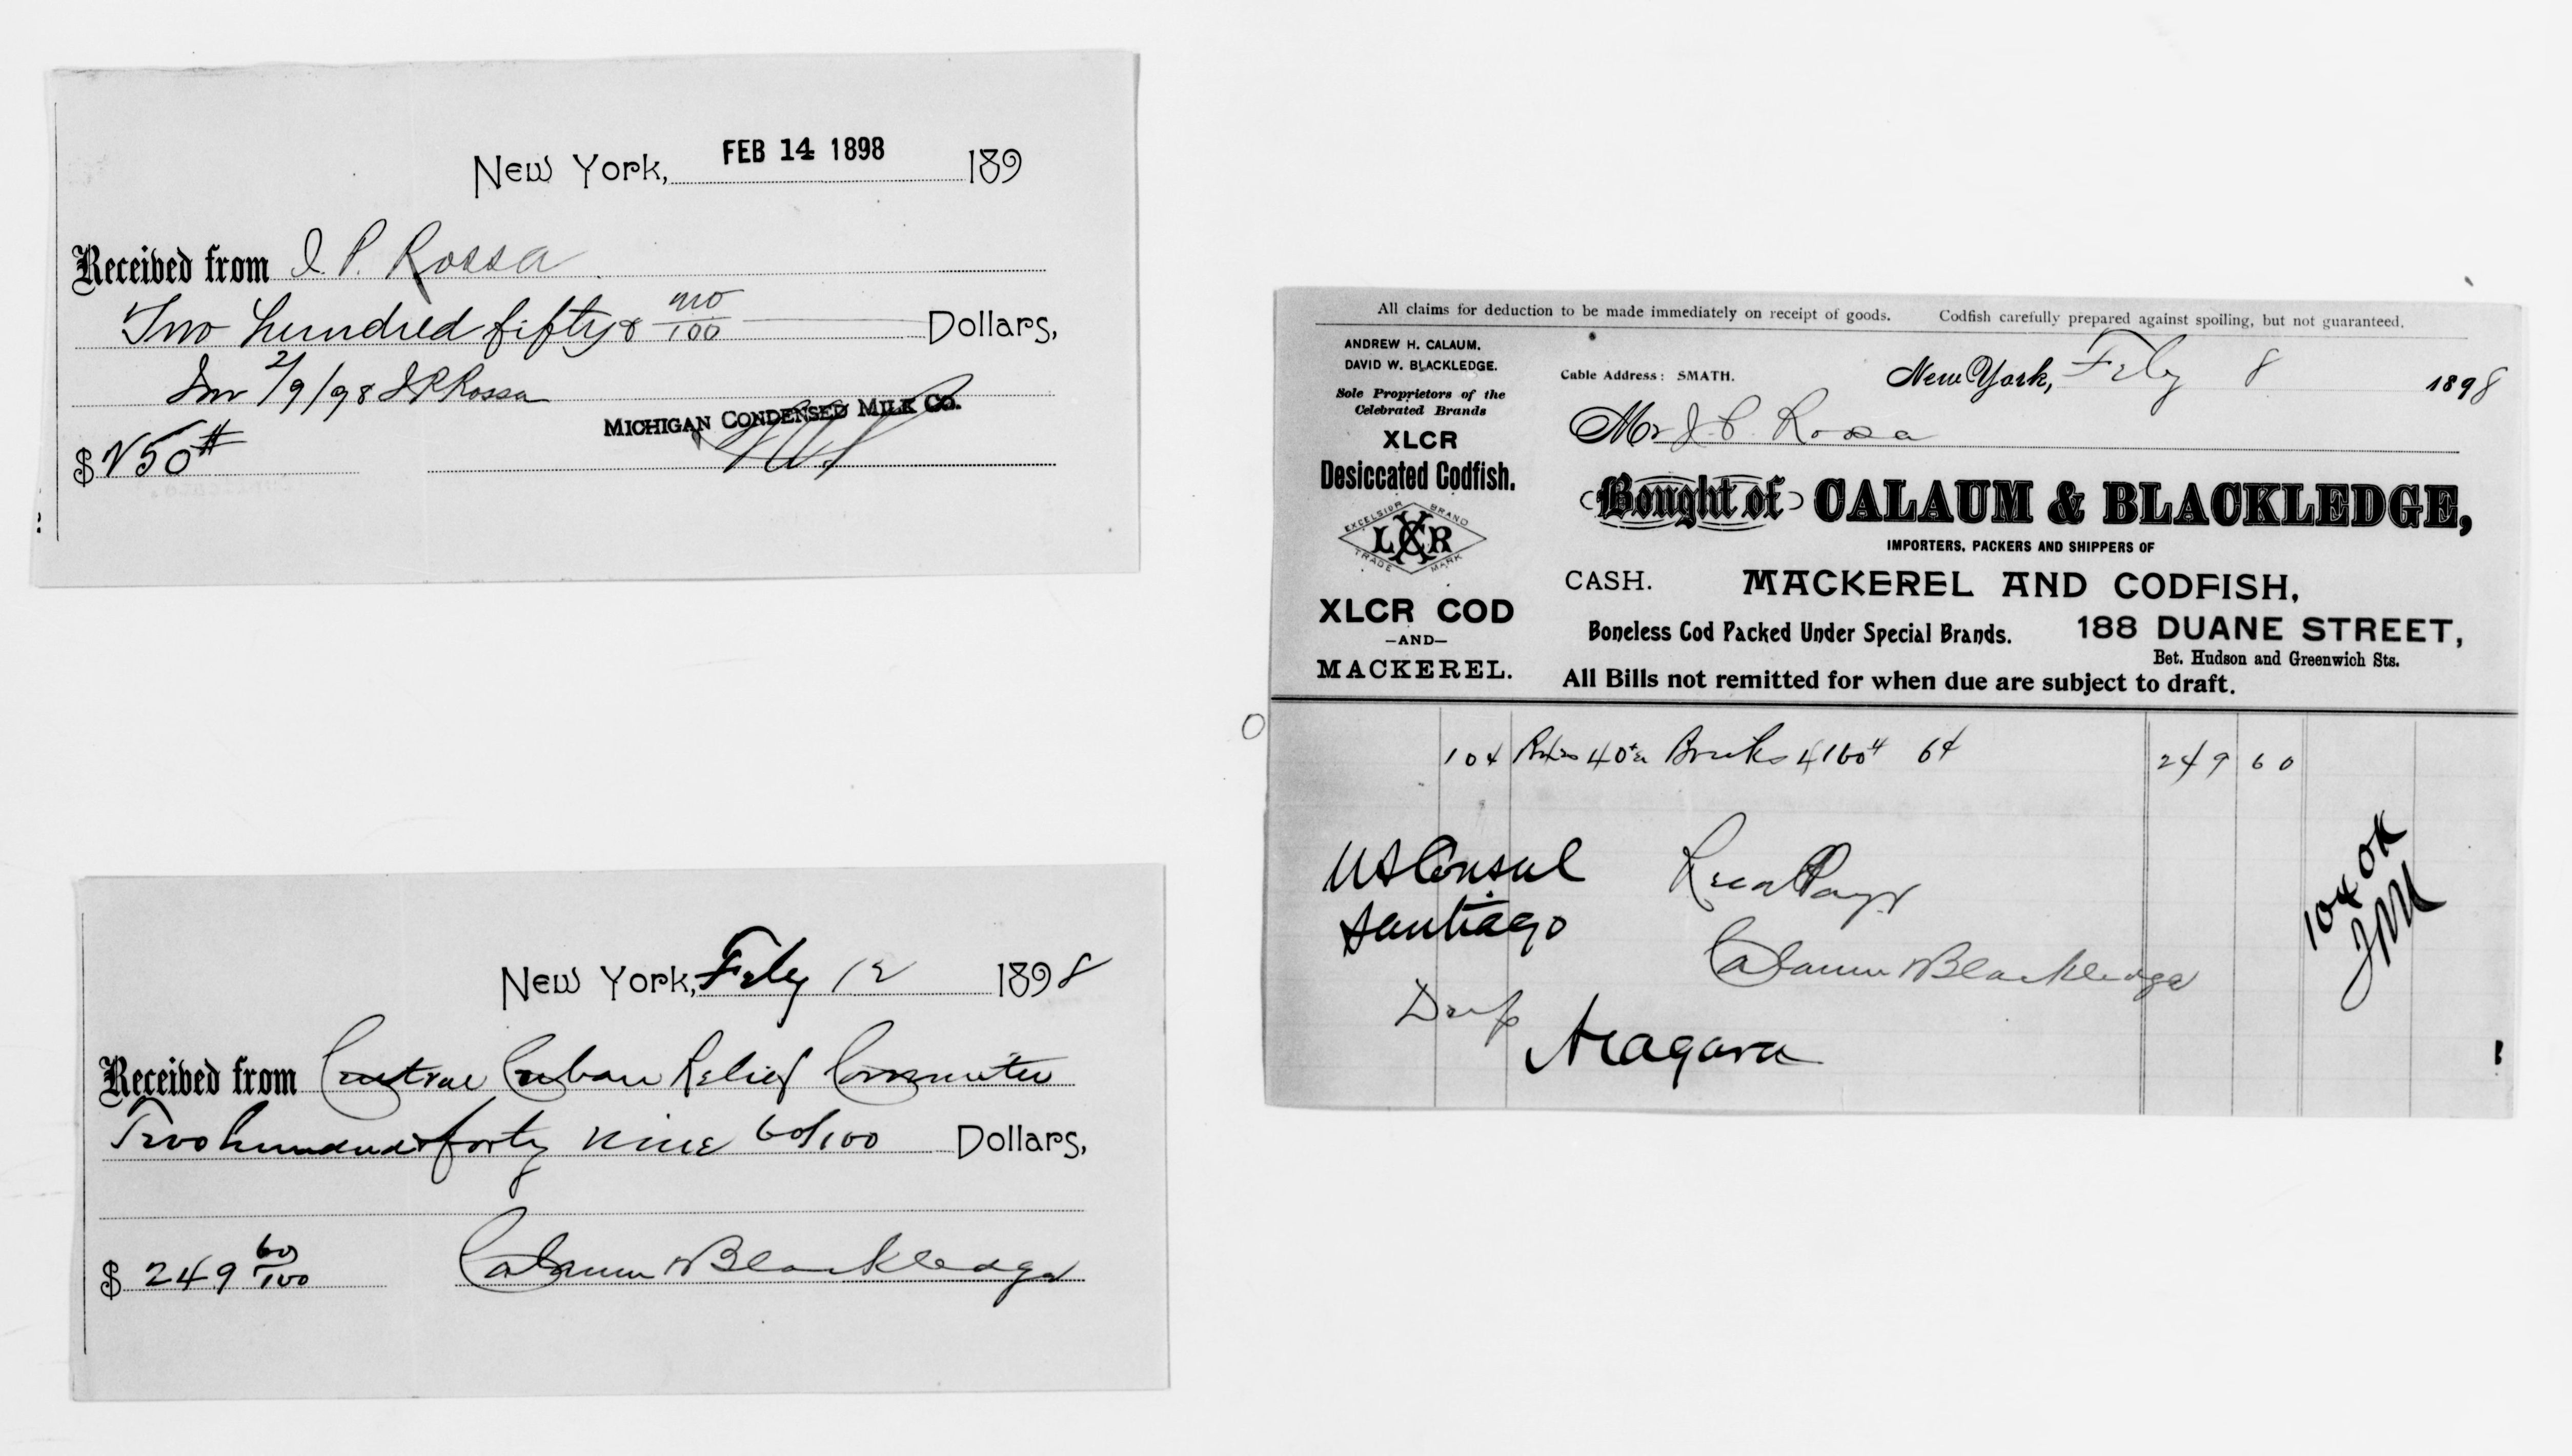 New York, FEB 14 1898 189
Received from J. P. Rossa
Two hundred fifty & no/100 Dollars,
Inv 2/9/98 J P Rossa
MICHIGAN CONDENSED MILK CO.
$250
New York, Feby 12 1898
Received from Central Cuban Relief Committee
Two hundred & forty nine 60/100 Dollars,
$ 249 60/100 Calaum & Blackledge
All claims for deduction to be made immediately on receipt of goods. Codfish carefully prepared against spoiling, but not guaranteed.
ANDREW H. CALAUM.
DAVID W. BLACKLEDGE.
Sole Proprietors of the
Celebrated Brands
XLCR
Desiccated Codfish.
EXCELSIOR BRAND
XLCR
TRADE MARK
XLCR COD
—AND—
MACKEREL.
Cable Address: SMATH. New York, Feby 8 1898
Mr J. P. Rossa
Bought of CALAUM & BLACKLEDGE,
IMPORTERS, PACKERS AND SHIPPERS OF
CASH. MACKEREL AND CODFISH,
Boneless Cod Packed Under Special Brands. 188 DUANE STREET,
Bet. Hudson and Greenwich Sts.
All Bills not remitted for when due are subject to draft.
104 Bxs 40 Bricks 4160 6¢ 249 60
US Consul
Santiago
Calaum & Blackledge
Dup
Niagara
104 OK